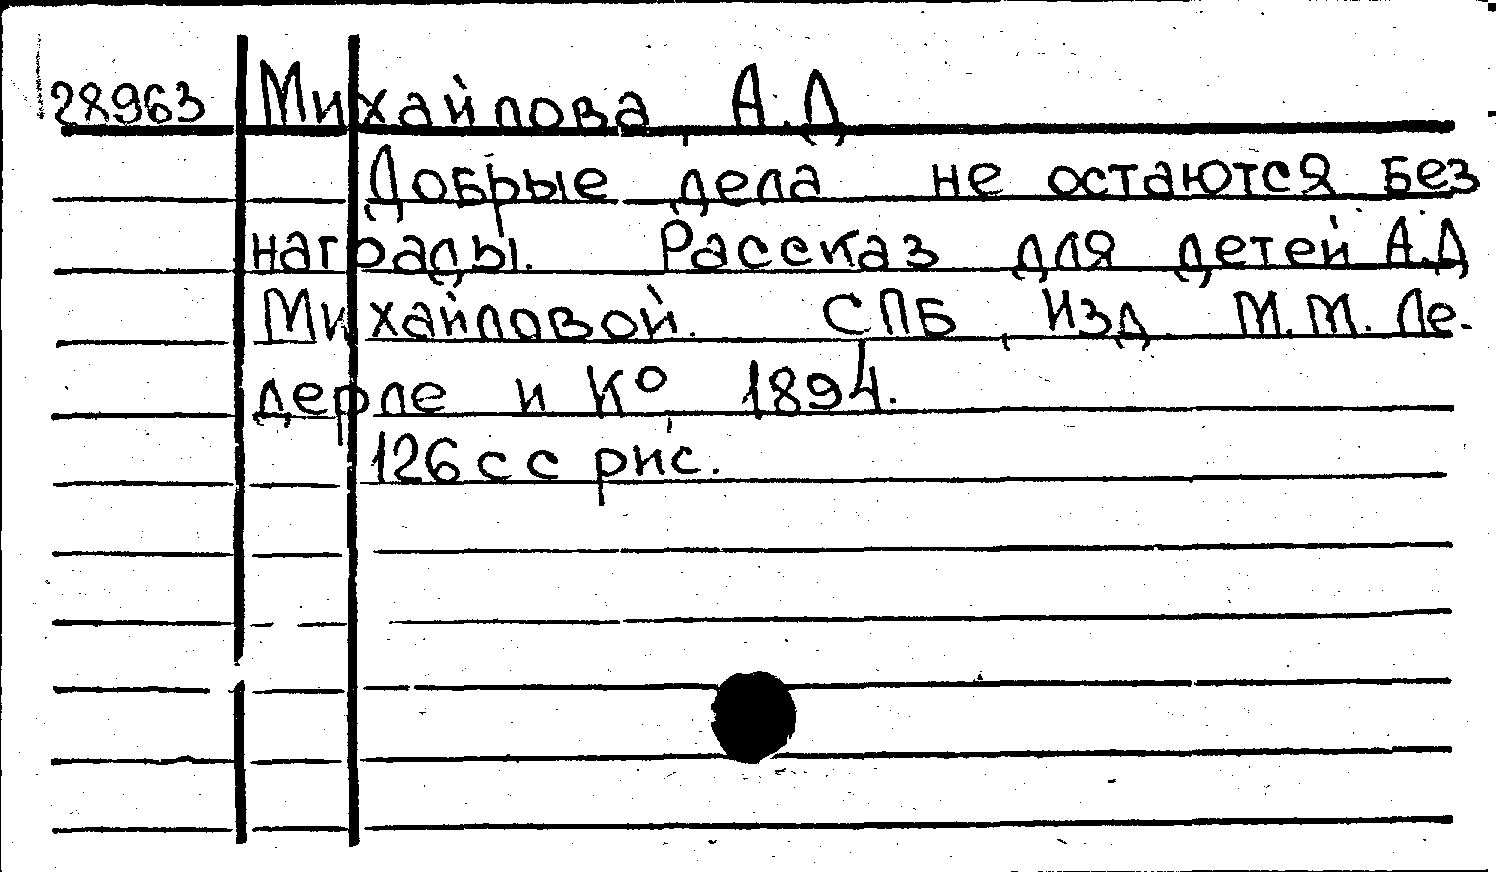 28963 Михайлова, А.Д
Добрые дела не остаются без
награды. Рассказ для детей А.Д
Михайловой. СПБ, Изд. М.М. Ле-
дерле и К°, 1894.
126 с с рис.